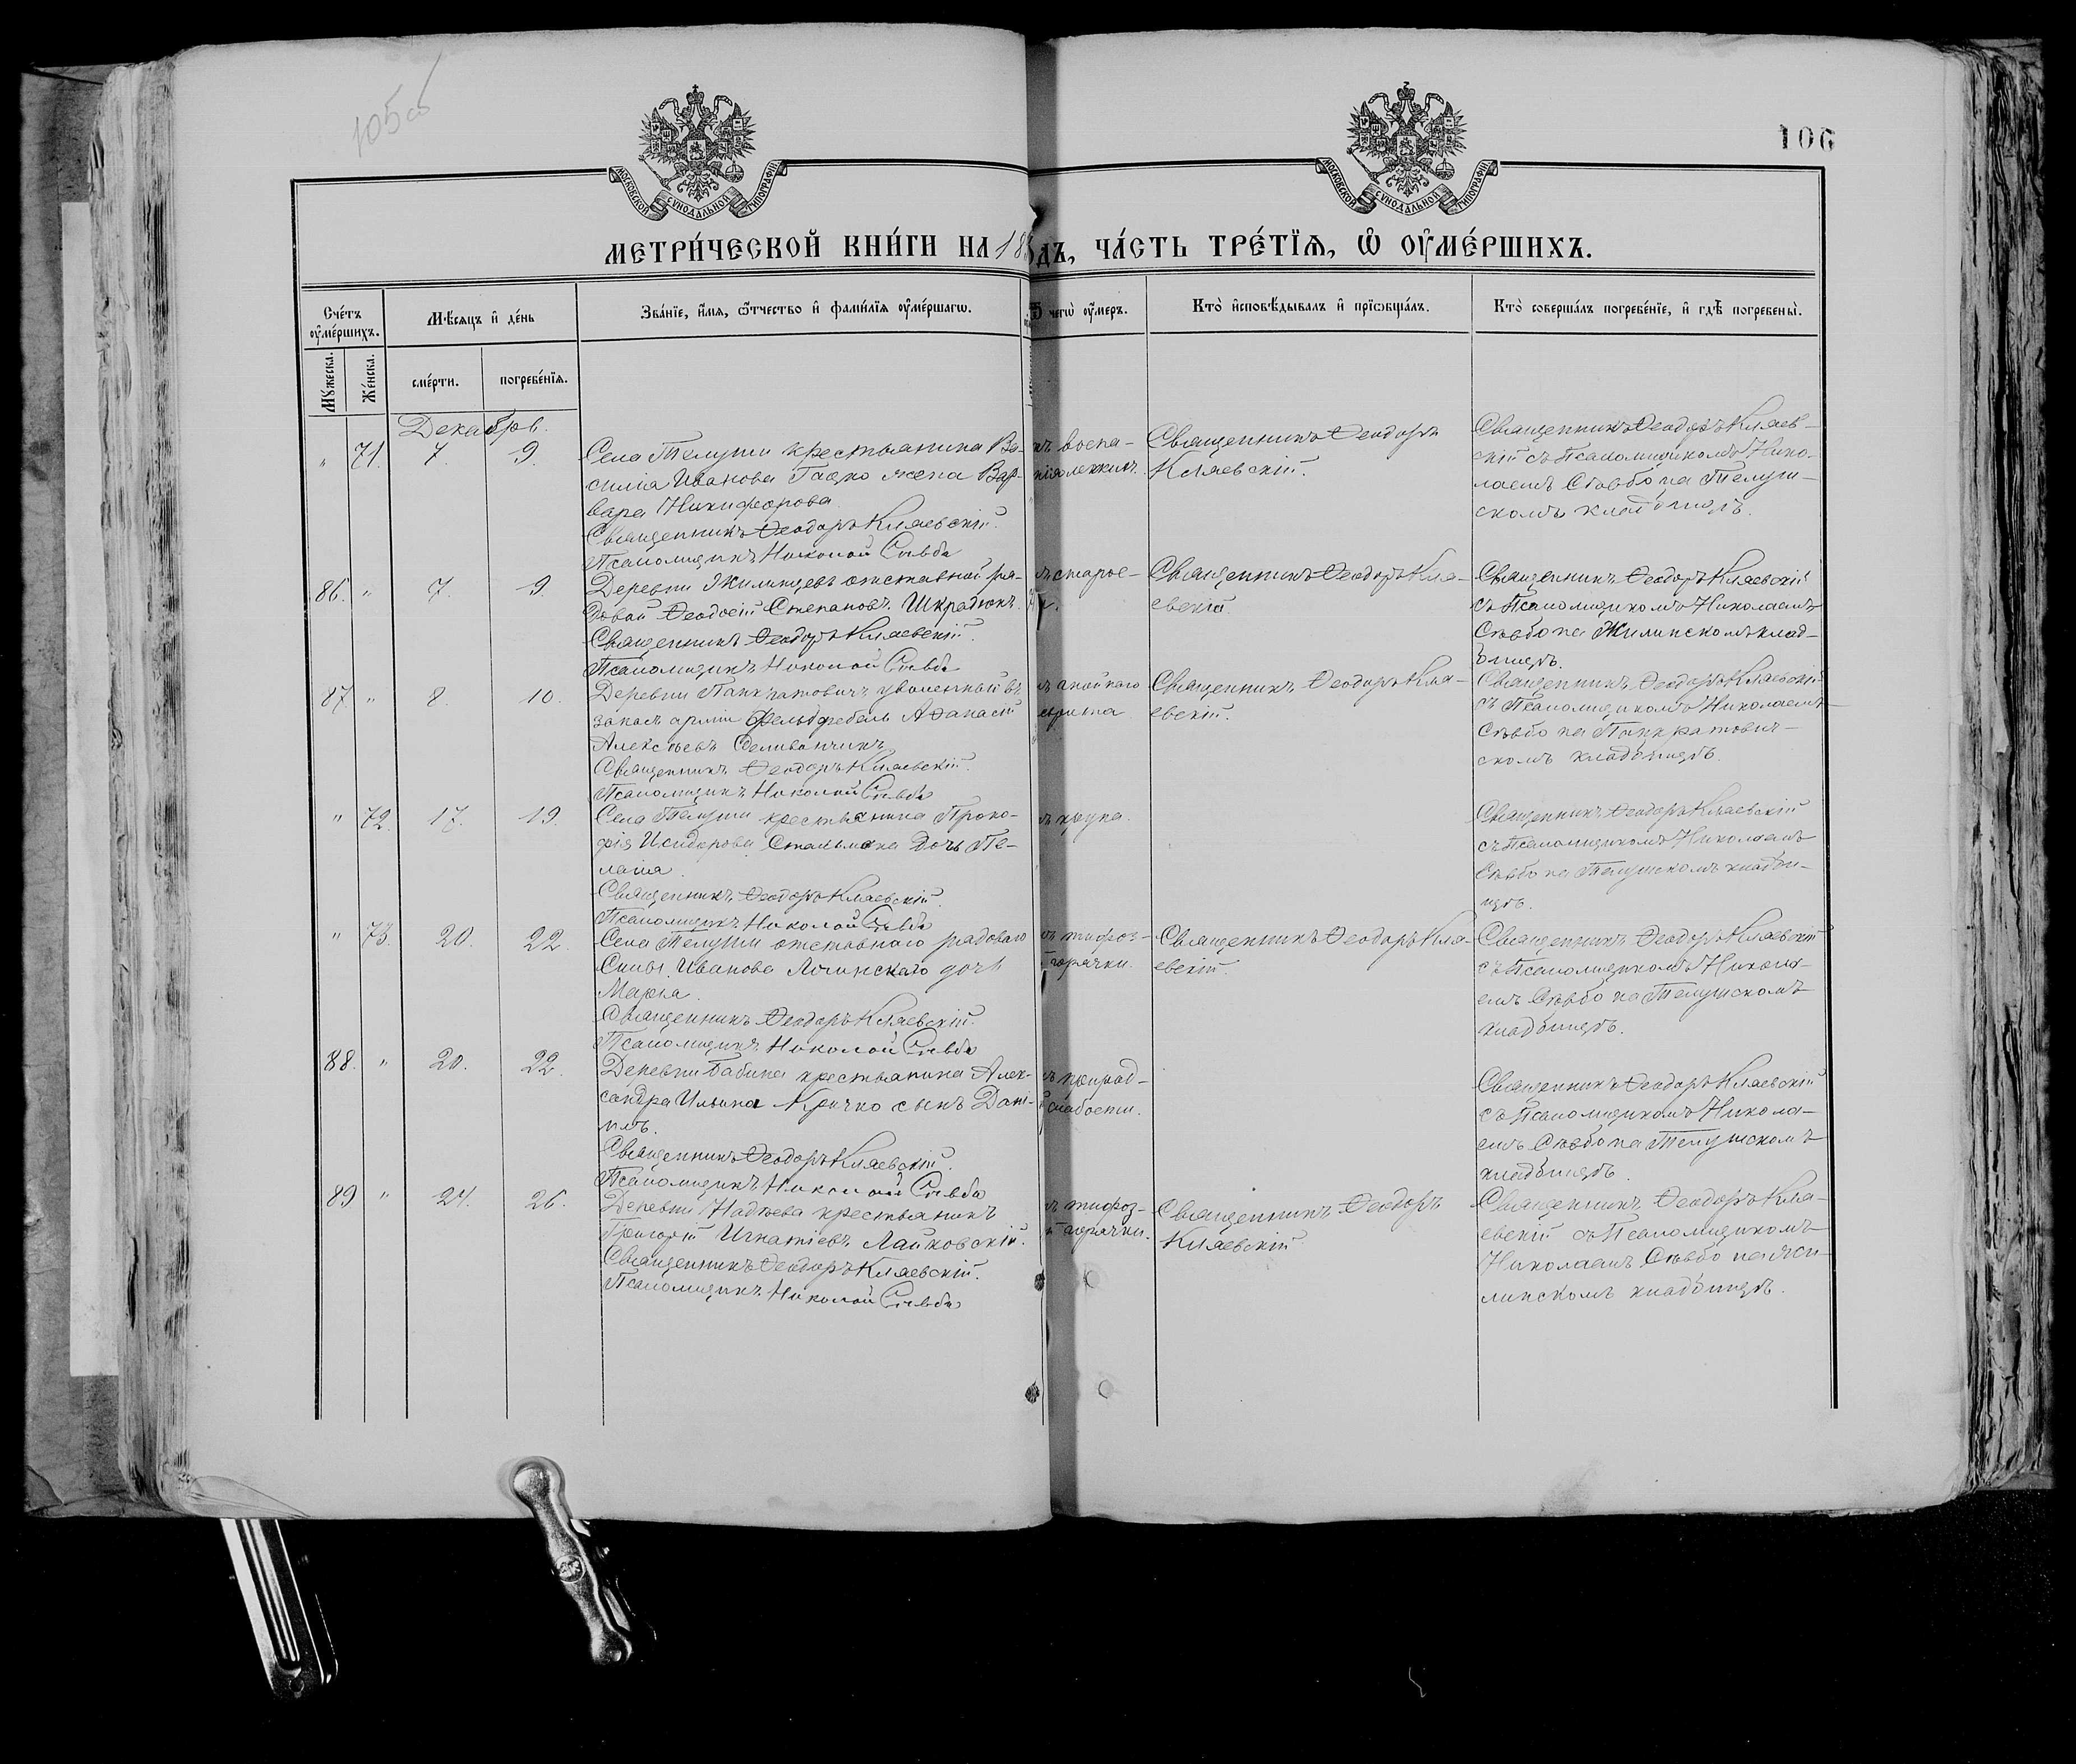 105об
106
МОСКОВСКОЙ СѴНОДАЛЬНОЙ ТИПОГРАФІИ
МОСКОВСКОЙ СѴНОДАЛЬНОЙ ТИПОГРАФІИ
МЕТРИ́ЧЕСКОЙ КНИ́ГИ НА 18
ДЪ, ЧА́СТЬ ТРЕ́ТЇѦ, Ѡ҆ ОУ҆МЕ́РШИХЪ.
Сче́тъ оу҆ме́ршихъ.
Мѣсѧцъ и҆ де́нь
Зва́нїе, и҆́мѧ, ѻ҆́тчество и҆ фами́лїѧ оу҆ме́ршагѡ.
Ѿ чегѡ̀ оу҆́меръ.
Кто̀ и҆сповѣ́дывалъ и҆ прїѡбща́лъ.
Кто̀ соверша́лъ погребе́нїе, и҆ гдѣ̀ погребены̀.
Мꙋ́жеска.
Же́нска.
сме́рти.
погребе́нїѧ.
Декабрь.
" 71. 7. 9.
Села Телуши крестьянина Ва-
силія Иванова Гацко жена Вар-
вара Никифорова
Священникъ Ѳеодоръ Кляевскій.
Псаломщикъ Николай Сѣвбо
ъ воспа-
нія легкихъ.
Священникъ Ѳеодоръ
Кляевскій.
Священникъ Ѳеодоръ Кляев-
скій съ Псаломщикомъ Нико-
лаемъ Сѣвбо на Телуш-
скомъ кладбищѣ.
86. " 7. 9.
Деревни Жилинцевъ отставной ря-
довой Ѳеодосій Степановъ Шкрадюкъ.
Священникъ Ѳеодоръ Кляевскій.
Псаломщикъ Николай Сѣвбо
ъ старос-
Священникъ Ѳеодоръ Кля-
евскій.
Священникъ Ѳеодоръ Кляевскій
съ Псаломщикомъ Николаемъ
Сѣвбо на Жилинскомъ клад-
бищѣ.
87. " 8. 10.
Деревни Панкратовичъ уволенный въ
запасъ арміи фельдфебель Аѳанасій
Алексѣевъ Селиванчикъ
Священникъ Ѳеодоръ Кляевскій.
Псаломщикъ Николай Сѣвбо
Священникъ Ѳеодоръ Кля-
евскій.
Священникъ Ѳеодоръ Кляевскій
съ Псаломщикомъ Николаемъ
Сѣвбо на Панкратович-
скомъ кладбищѣ.
" 72. 17. 19.
Села Телуши крестьянина Проко-
фія Исидорова Стальмака дочь Пе-
лагія.
Священникъ Ѳеодоръ Кляевскій.
Псаломщикъ Николай Сѣвбо
ъ крупа.
Священникъ Ѳеодоръ Кляевскій
съ Псаломщикомъ Николаемъ
Сѣвбо на Телушскомъ кладби-
щѣ.
" 73. 20. 22.
Села Телуши отставного рядового
Силы Иванова Лочинскаго дочь
Марѳа.
Священникъ Ѳеодоръ Кляевскій.
Псаломщикъ Николай Сѣвбо
ъ тифоз-
горячки.
Священникъ Ѳеодоръ Кля-
евскій.
Священникъ Ѳеодоръ Кляевскій
съ Псаломщикомъ Никола-
емъ Сѣвбо на Телушскомъ
кладбищѣ.
88. " 20. 22.
Деревни Бабина крестьянина Алек-
сандра Ильина Кричко сынъ Дані-
илъ.
Священникъ Ѳеодоръ Кляевскій.
Псаломщикъ Николай Сѣвбо
ъ прирад-
слабости.
Священникъ Ѳеодоръ Кляевскій
съ Псаломщикомъ Никола-
емъ Сѣвбо на Телушскомъ
кладбищѣ.
89 " 24. 26.
Деревни Надѣева крестьянинъ
Григорій Игнатіевъ Лайковскій.
Священникъ Ѳеодоръ Кляевскій.
Псаломщикъ Николай Сѣвбо
ъ тифоз-
й горячки.
Священникъ Ѳеодоръ
Кляевскій
Священникъ Ѳеодоръ Кля-
евскій съ Псаломщикомъ
Николаемъ Сѣвбо на Жи-
линскомъ кладбищѣ.